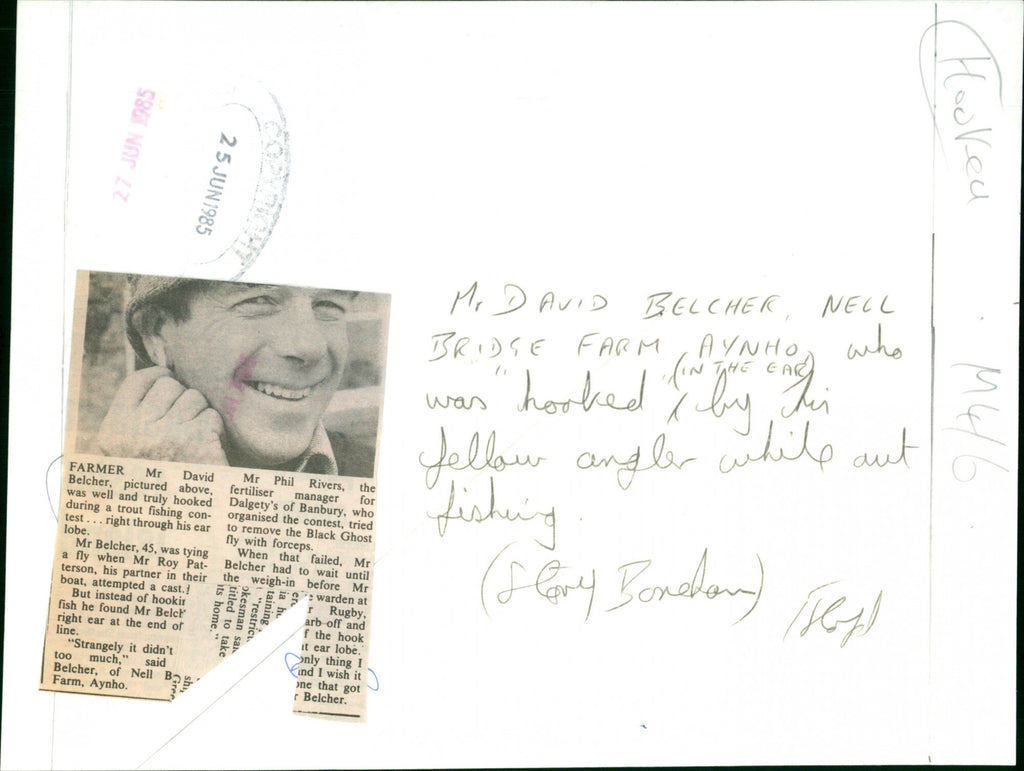 27 JUN 1985
COPYRIGHT
25 JUN 1985
Hooked
M4/6
Mr DAVID BELCHER, NELL
BRIDGE FARM, AYNHO, who
(IN THE EAR)
was "hooked" by his
fellow angler while out
fishing.
(Story Boneham)
FARMER Mr David
Belcher, pictured above,
was well and truly hooked
during a trout fishing con-
test . . . right through his ear
lobe.
Mr Belcher, 45, was tying
a fly when Mr Roy Pat-
terson, his partner in their
boat, attempted a cast.
But instead of hookin
fish he found Mr Belch
right ear at the end of
line.
"Strangely it didn't
too much," said
Belcher, of Nell B
Farm, Aynho.
Mr Phil Rivers, the
fertiliser manager for
Dalgety's of Banbury, who
organised the contest, tried
to remove the Black Ghost
fly with forceps.
When that failed, Mr
Belcher had to wait until
the weigh-in before Mr
warden at
r Rugby,
arb off and
f the hook
t ear lobe.
only thing I
nd I wish it
one that got
r Belcher.
taining
"restric
okesman sai
titled to take
its home."